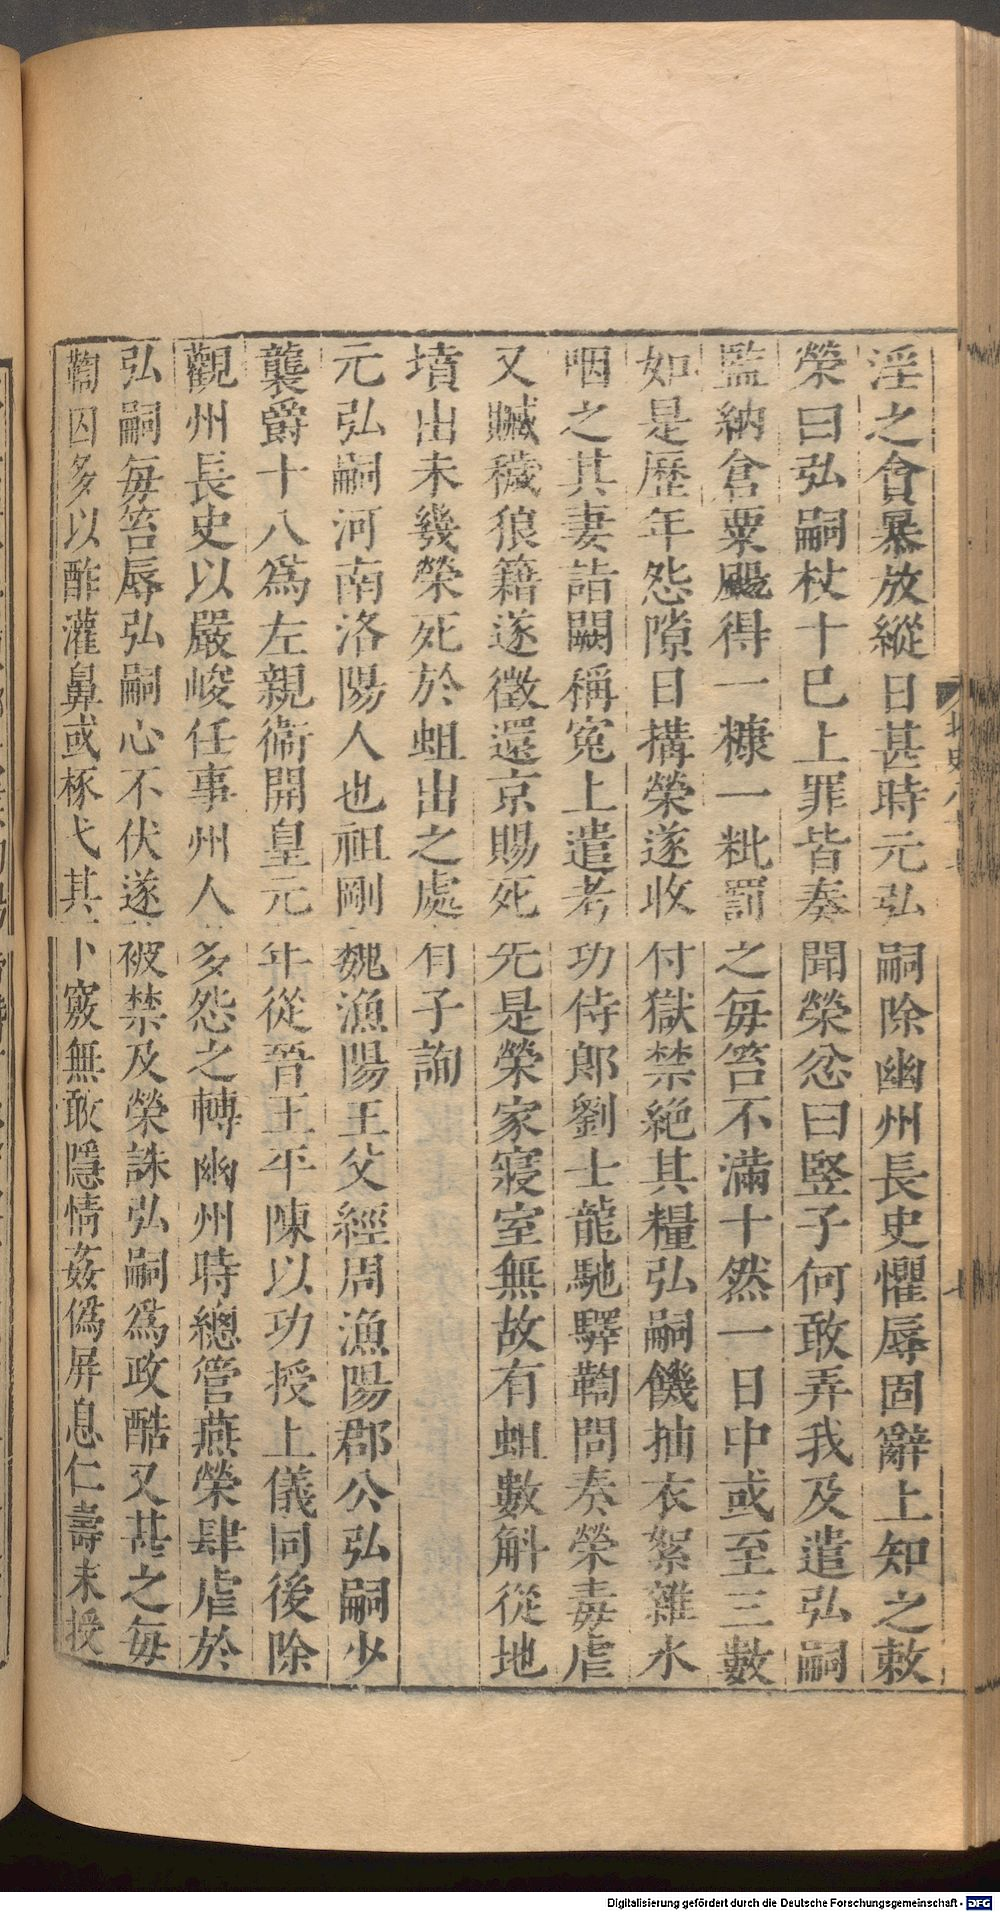 淫之貪暴放縱日甚時元弘嗣除幽州長史懼辱固辭上知之敕
榮曰弘嗣杖十已上罪皆奏聞榮忿曰豎子何敢弄我及遣弘嗣
監納倉粟颺得一糠一粃罰之每笞不滿十然一日中或至三數
如是歷年怨隙日搆榮遂收付獄禁絶其糧弘嗣饑抽衣絮雜水
咽之其妻詣闕稱寃上遣考功侍郎劉士龍馳驛鞫問奏榮毒虐
又贓穢狼籍遂徵還京賜死先是榮家寢室無故有蛆數斛從地
墳出未幾榮死於蛆出之處有子詢
元弘嗣河南洛陽人也祖剛魏漁陽王父經周漁陽郡公弘嗣少
襲爵十八爲左親衞開皇元年從晉王平陳以功授上儀同後除
觀州長史以嚴峻任事州人多怨之轉幽州時總管燕榮肆虐於
弘嗣每笞辱弘嗣心不伏遂被禁及榮誅弘嗣爲政酷又甚之每
鞫囚多以酢灌鼻或椓弋其下竅無敢隱情姦僞屏息仁壽末授
Digitalisierung gefördert durch die Deutsche Forschungsgemeinschaft - DFG